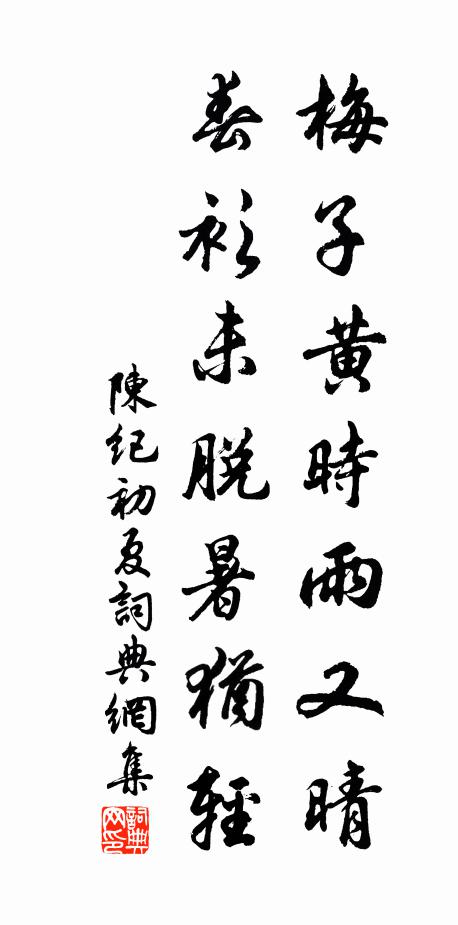 梅子黄時雨又晴
春衫未脱暑猶輕
陳紀初夏詞典網集
詞典网印